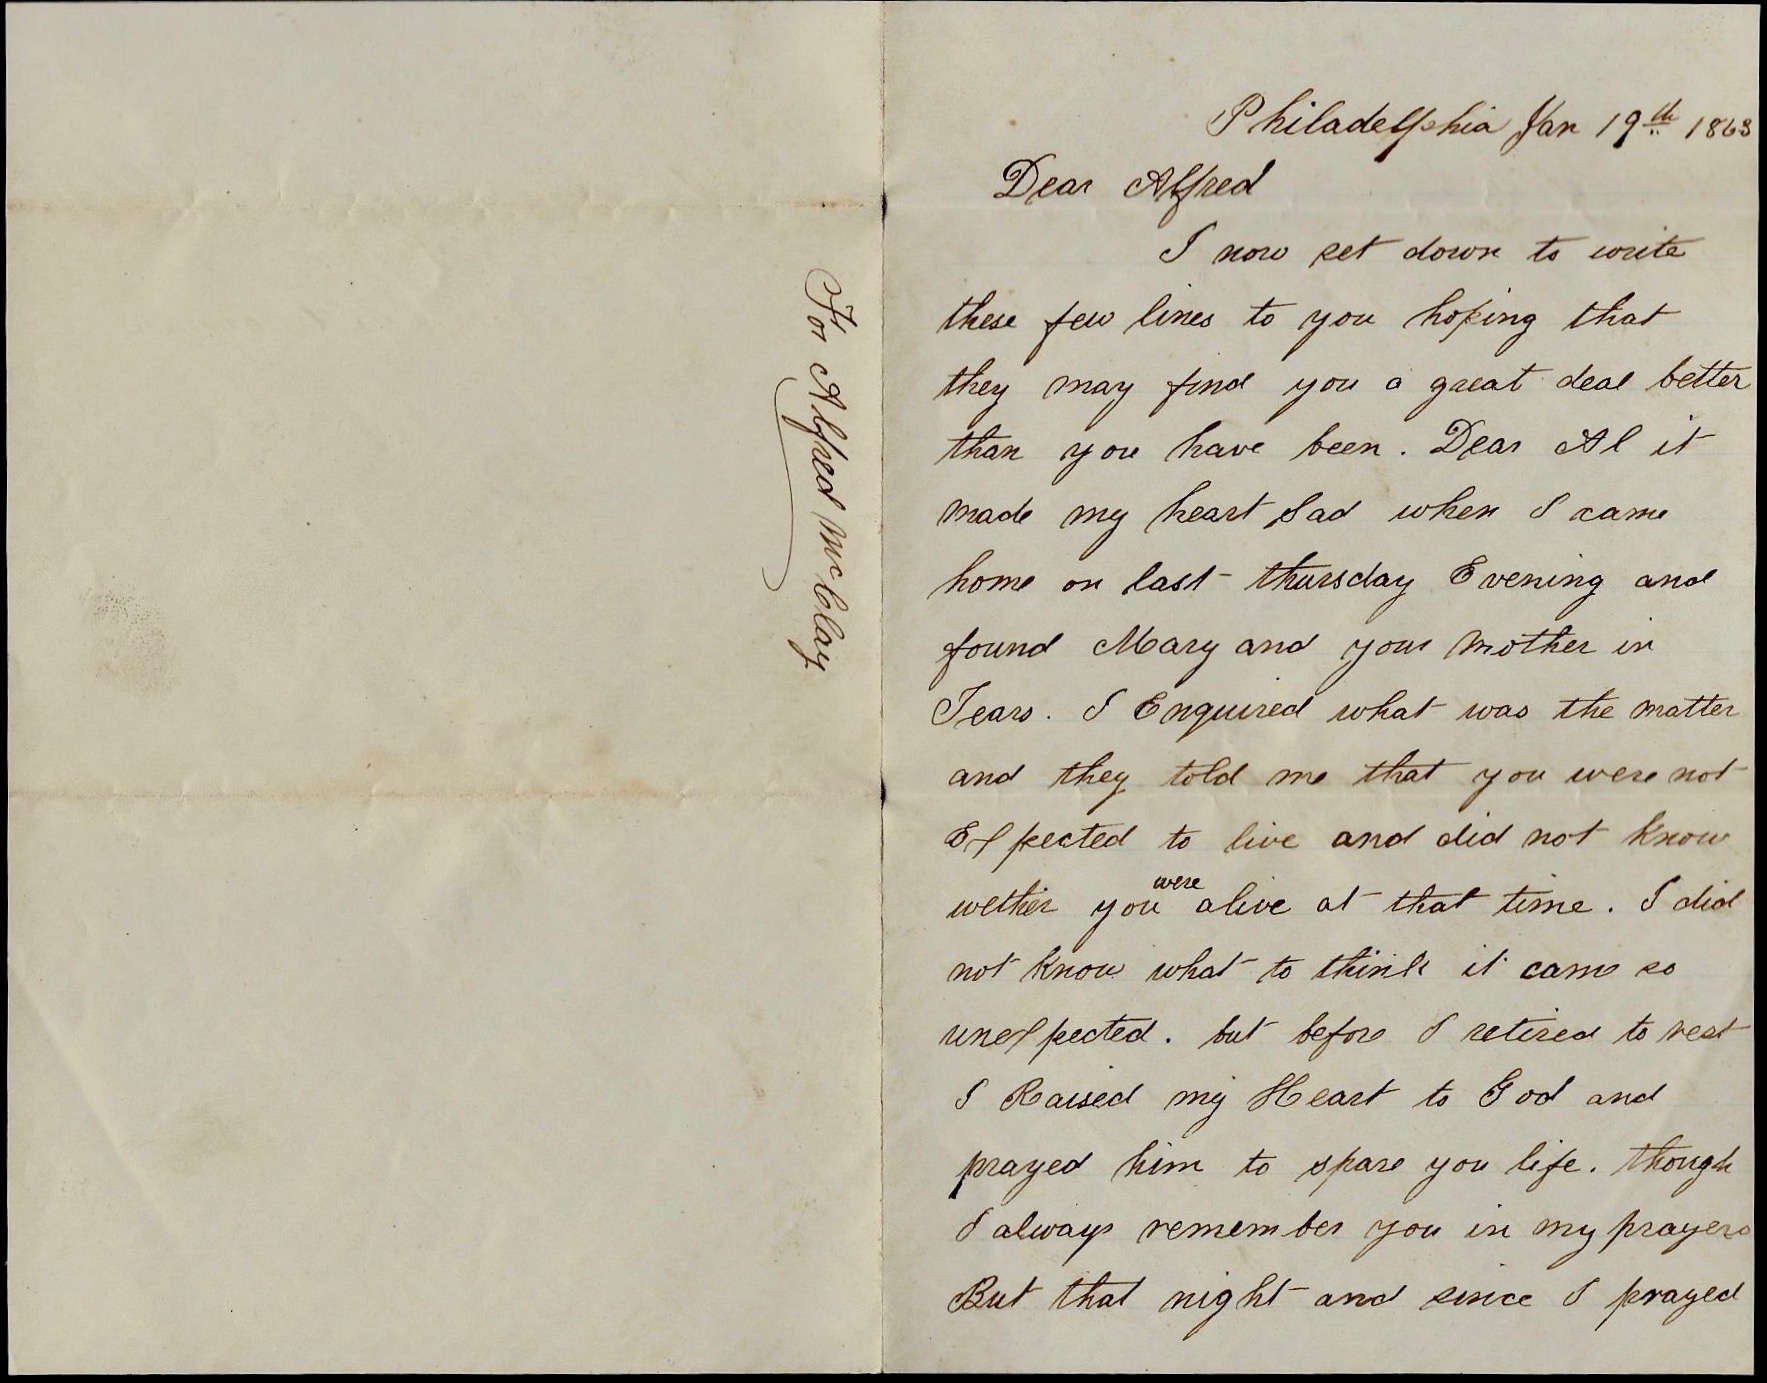 For Alfred McClay
Philadelphia Jan 19th 1863
Dear Alfred
I now set down to write
these few lines to you hoping that
they may find you a great deal better
than you have been. Dear Al it
made my heart Sad when I came
home on last thursday Evening and
found Mary and your Mother in
Tears. I Enquired what was the matter
and they told me that you were not
Expected to live and did not know
wether you were alive at that time. I did
not know what to think it came so
unexpected. but before I retired to rest
I Raised my Heart to God and
prayed him to spare you life. though
I always remember you in my prayers
But that night and since I prayed